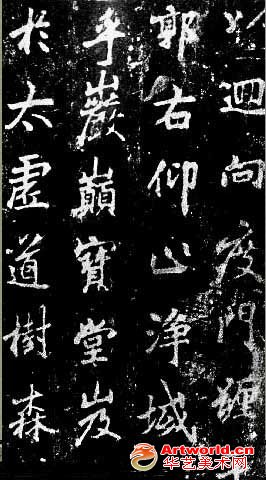 以迴向度門
郭右仰止淨域
乎巖巔寶堂岌
於太虛道樹森
Artworld.cn
华艺美术网